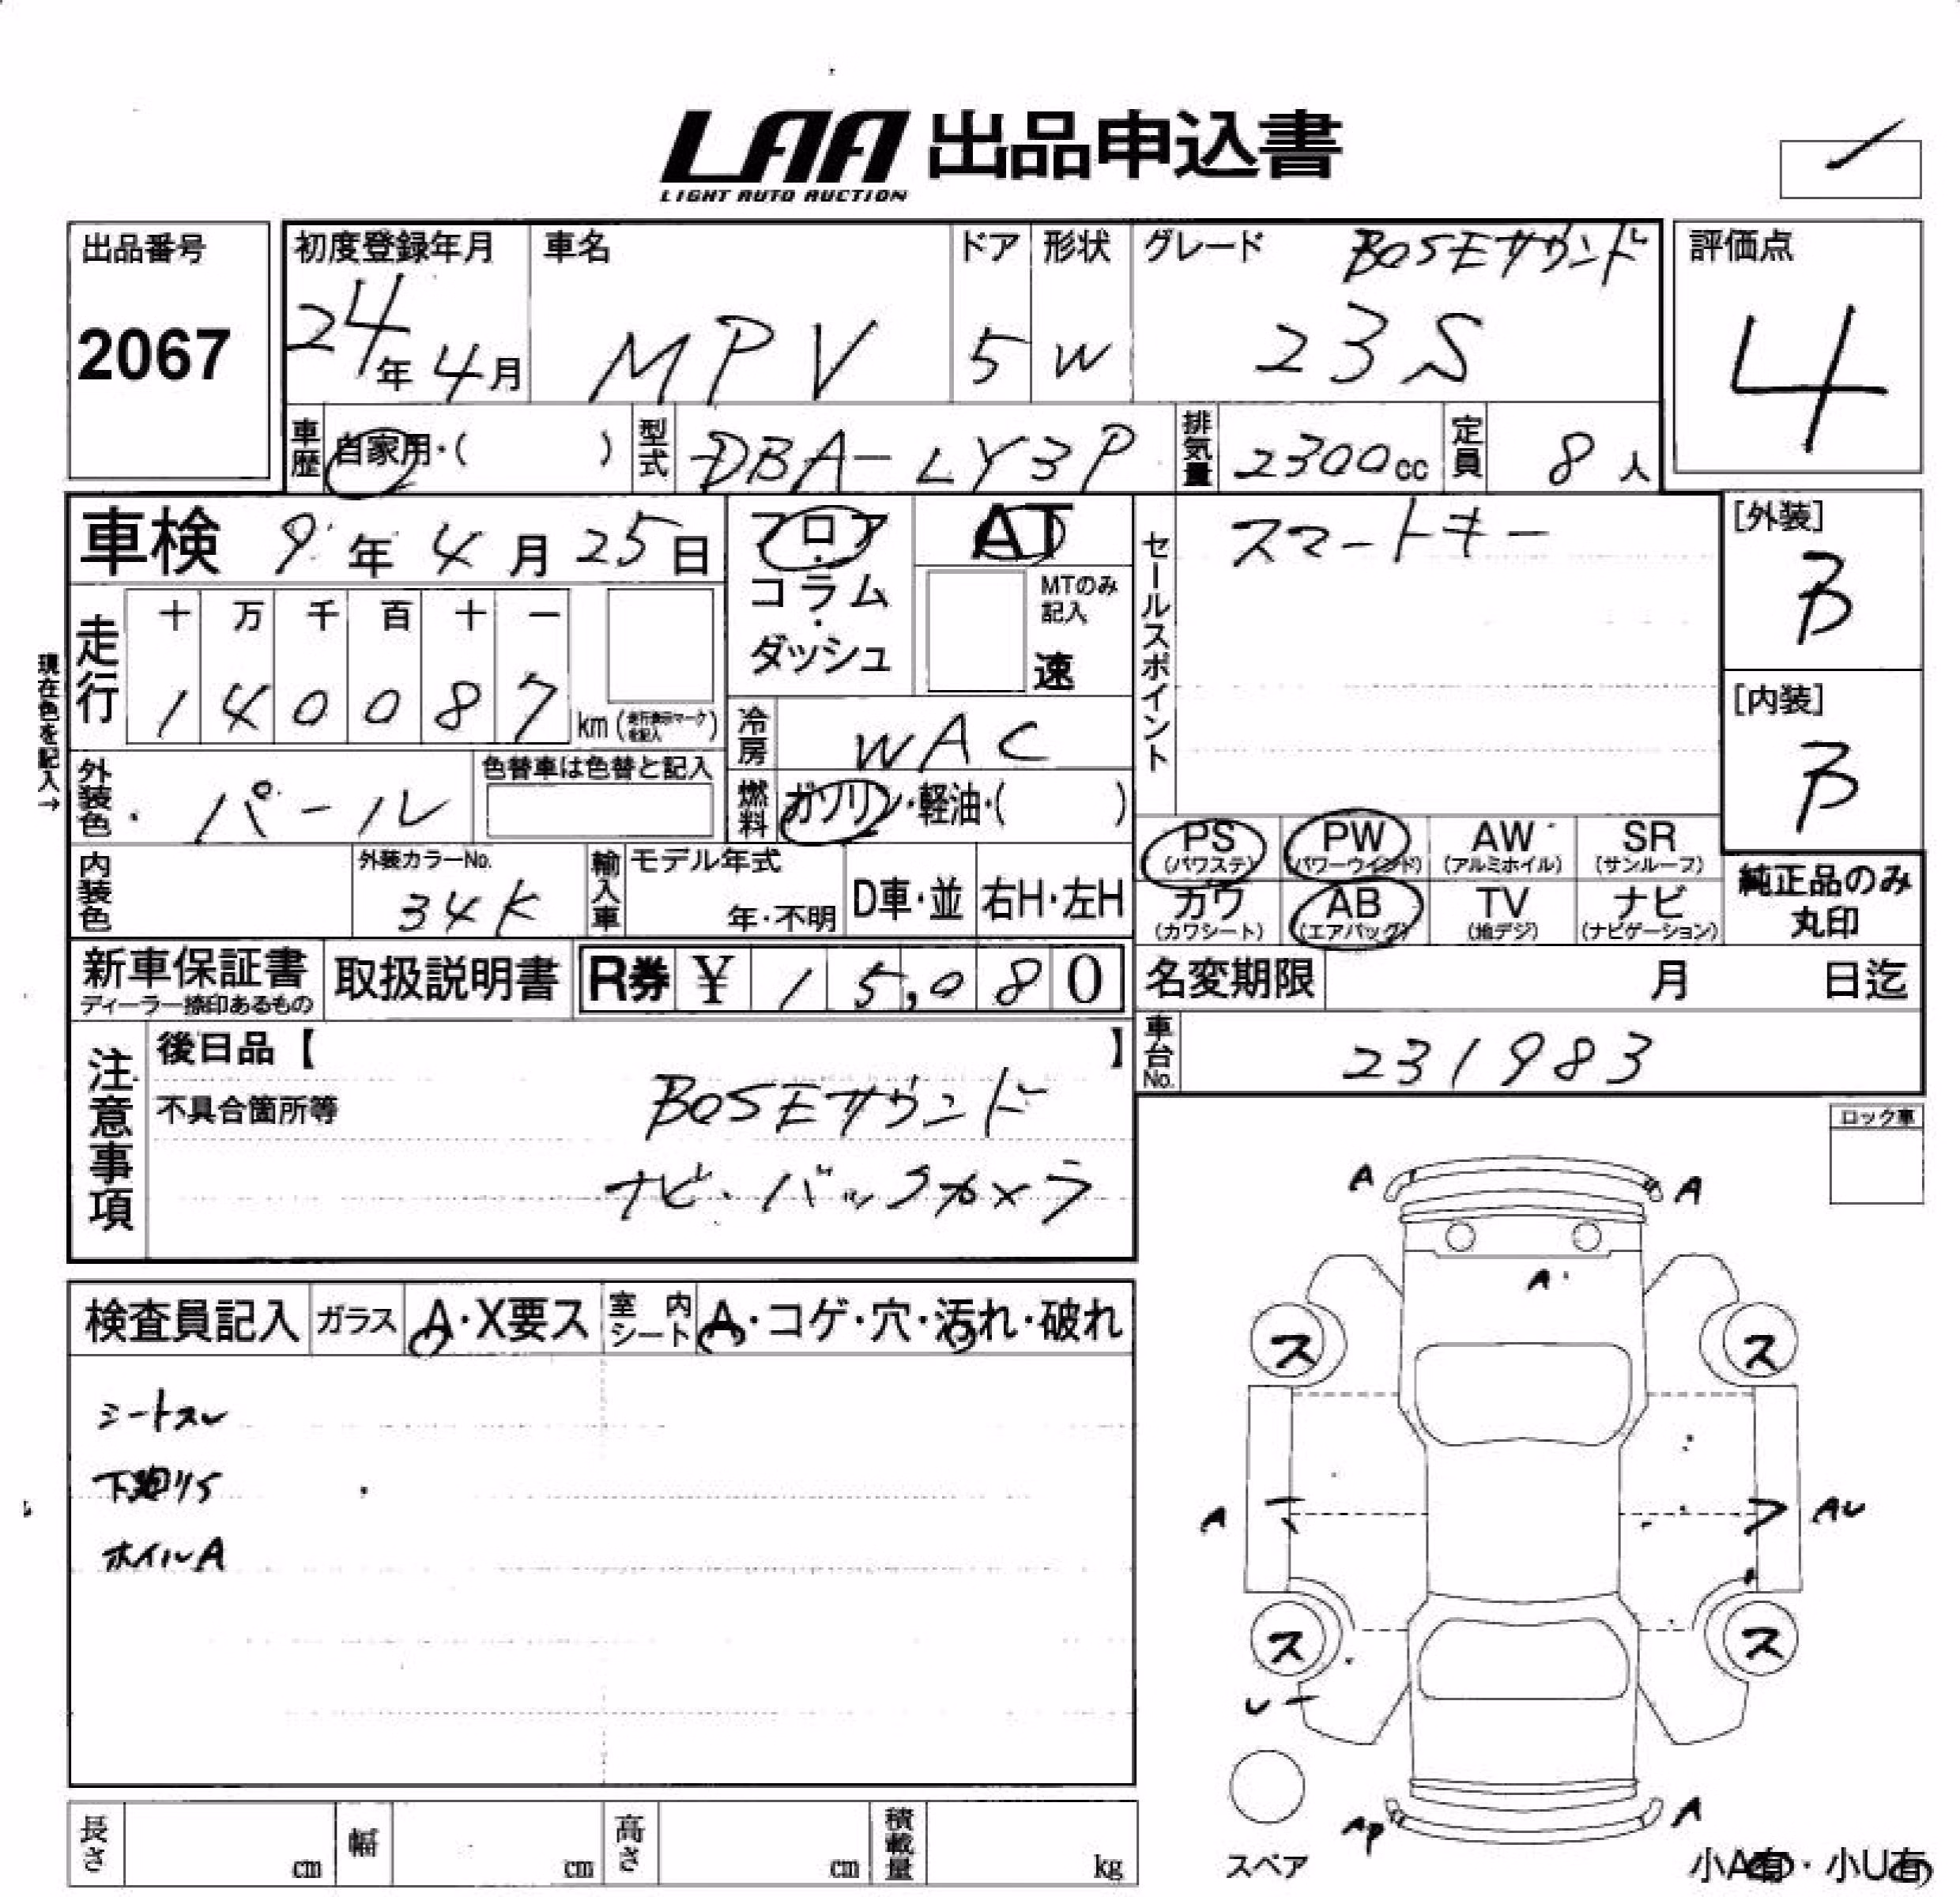 LAA 出品申込書
LIGHT AUTO AUCTION
出品番号
2067
初度登録年月
24年 4月
車名
MPV
ドア
5
形状
W
グレード BOSEサウンド
23S
評価点
4
車歴 自家用・( )
型式 DBA-LY3P
排気量 2300cc
定員 8人
車検 9年 4月 25日
フロア・コラム・ダッシュ
AT
MTのみ記入
速
セールスポイント
スマートキー
[外装]
B
[内装]
B
現在色を記入→
走行
十 万 千 百 十 一
1 4 0 0 8 7 km (走行表示マークを記入)
冷房 WAC
燃料 ガソリン・軽油・( )
外装色 パール
色替車は色替と記入
内装色
外装カラーNo.
34K
輸入車
モデル年式
年・不明
D車・並
右H・左H
PS (パワステ)
PW (パワーウインド)
AW (アルミホイル)
SR (サンルーフ)
カワ (カワシート)
AB (エアバッグ)
TV (地デジ)
ナビ (ナビゲーション)
純正品のみ
丸印
新車保証書
ディーラー捺印あるもの
取扱説明書
R券 ¥ 15,080
名変期限 月 日迄
車台No. 231983
注意事項
後日品【 】
不具合箇所等
BOSEサウンド
ナビ・バックカメラ
ロック車
検査員記入 ガラス A・X要ス 室内シート A・コゲ・穴・汚れ・破れ
シートスレ
下廻りS
ホイルA
A A
A
ス ス
A AU
ス ス
U
AP A
スペア
小A有・小U有
長さ cm
幅 cm
高さ cm
積載量 kg